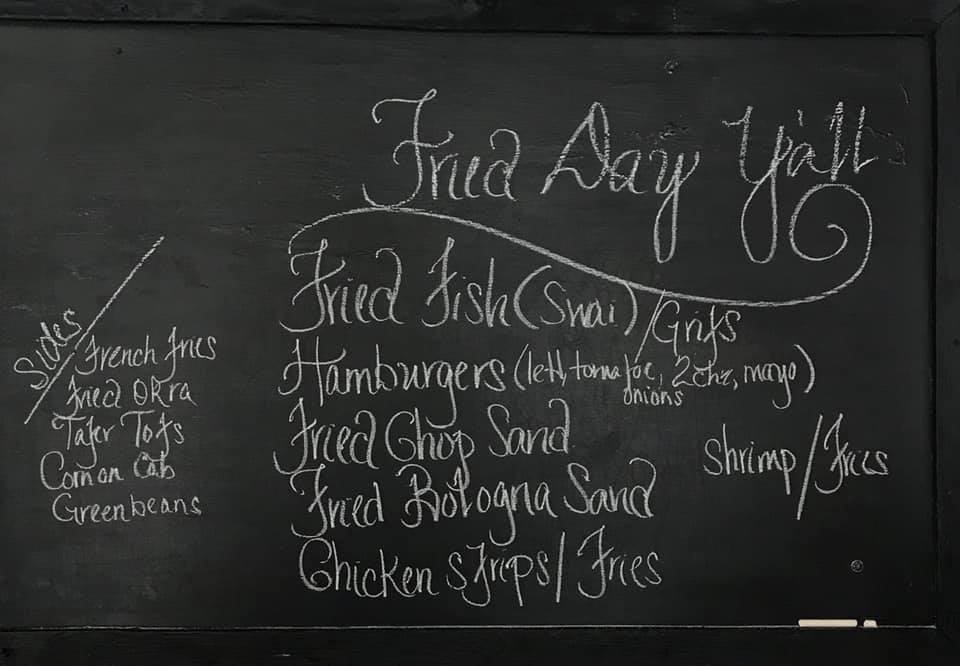 Fried Day Y'all
Fried Fish (Swai) / Grits
Hamburgers (lett, tomatoe, 2chz, mayo)
onions
Fried Chop Sand
Fried Bologna Sand
Chicken Strips / Fries
Shrimp / Fries
Sides
French Fries
Fried Okra
Tater Tots
Corn on Cob
Greenbeans